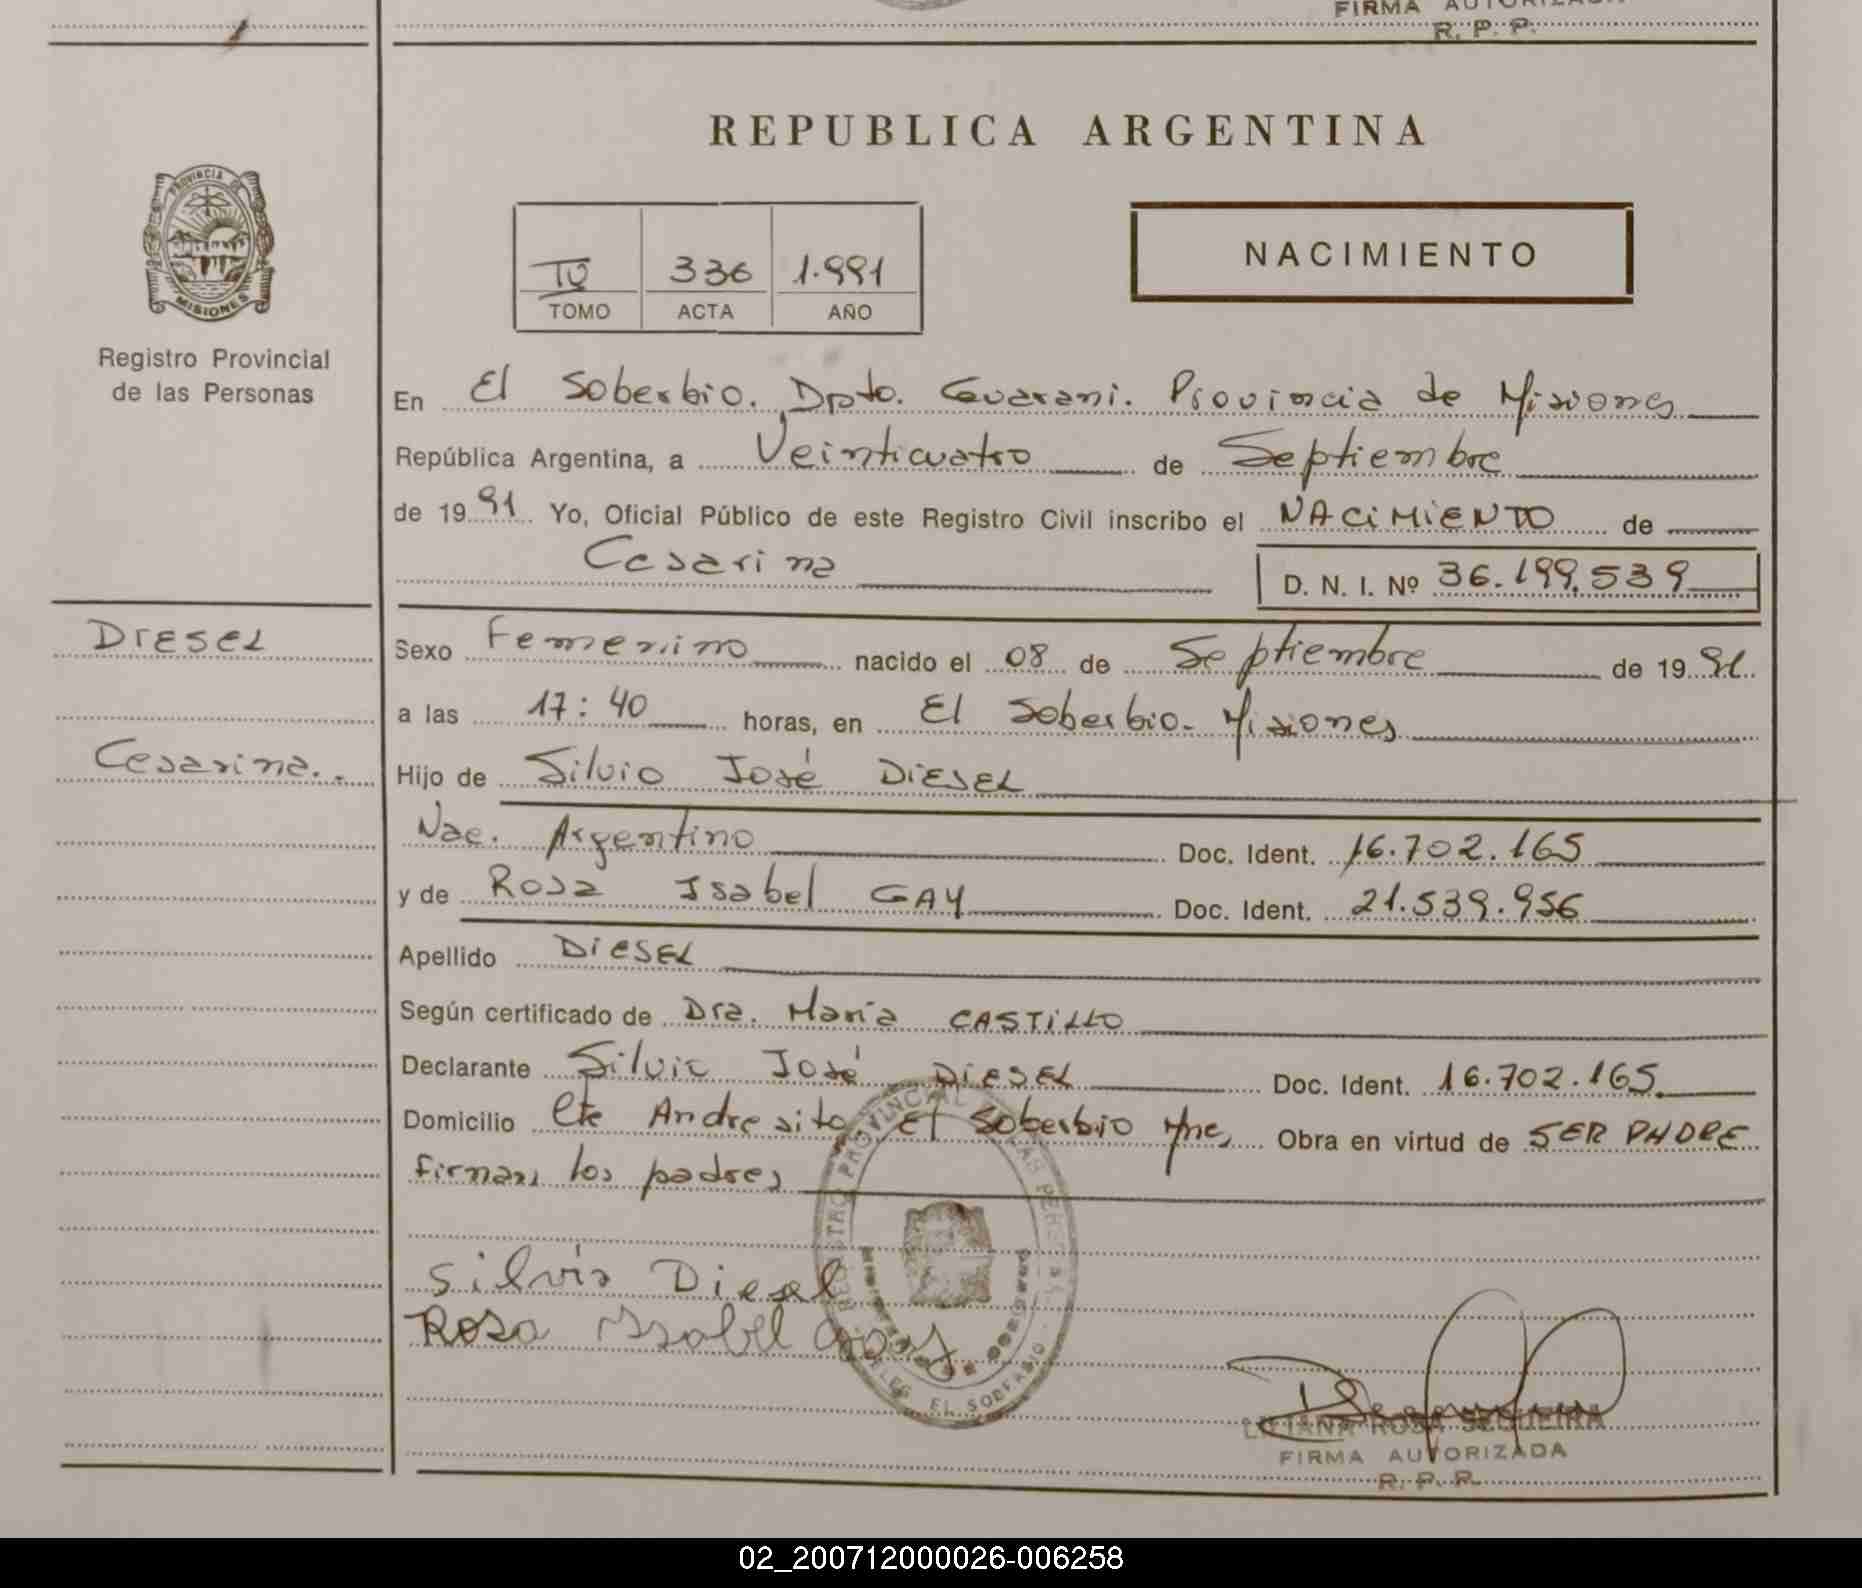 FIRMA AUTORIZADA
R. P. P.
REPUBLICA ARGENTINA
PROVINCIA DE MISIONES
Registro Provincial
de las Personas
IV 336 1.991
TOMO ACTA AÑO
NACIMIENTO
En El Soberbio. Dpto. Guarani. Provincia de Misiones
República Argentina, a Veinticuatro de Septiembre
de 1991 Yo, Oficial Público de este Registro Civil inscribo el NACIMIENTO de
Cesarina D. N. I. Nº 36.199.539
DIESEL
Cesarina..
Sexo Femenino nacido el 08 de Septiembre de 1991.
a las 17:40 horas, en El Soberbio. Misiones
Hijo de Silvio José DIESEL
Nac. Argentino Doc. Ident. 16.702.165
y de Rosa Isabel GAY Doc. Ident. 21.539.956
Apellido DIESEL
Según certificado de Dra. María CASTILLO
Declarante Silvio José DIESEL Doc. Ident. 16.702.165.
Domicilio Cte Andresito El Soberbio Mnes Obra en virtud de SER PADRE
Firman los padres
Silvio Diesel
Rosa Isabel Gay
REGISTRO PROVINCIAL DE LAS PERSONAS
DELEG. EL SOBERBIO
LILIANA ROSA SEQUEIRA
FIRMA AUTORIZADA
R. P. P.
02_200712000026-006258